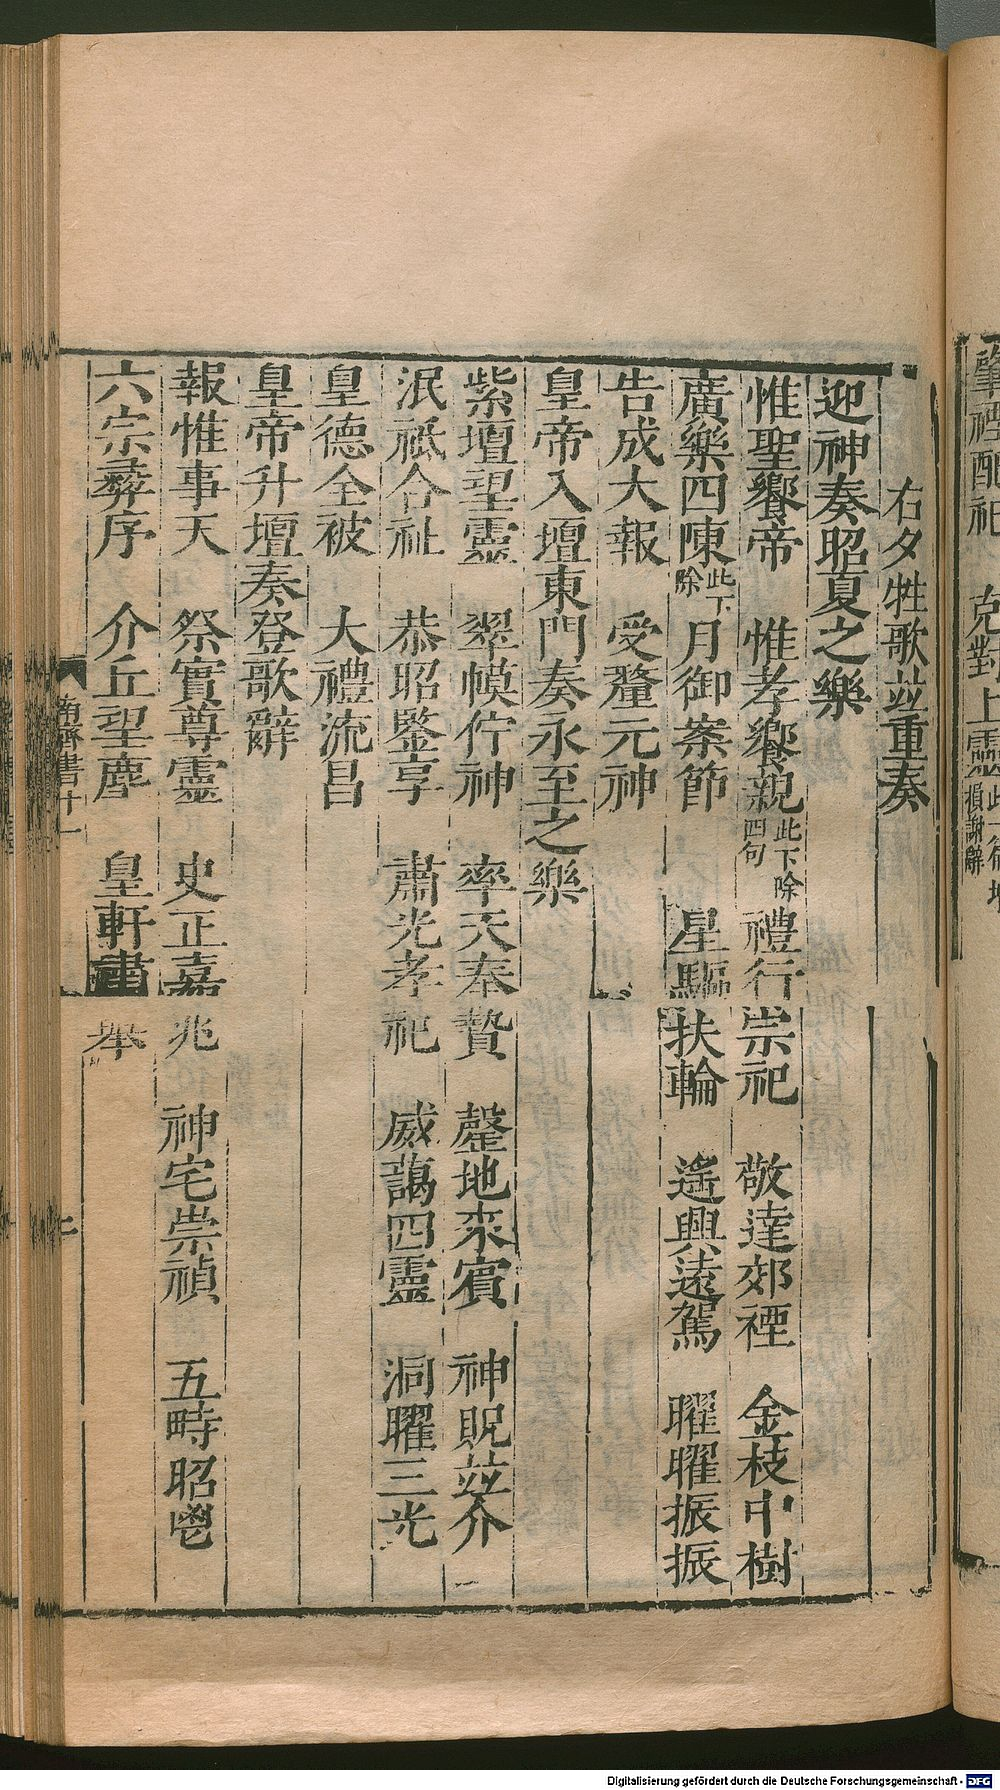 肇禋配祀　克對上靈
損謝辭
右夕牲歌並重奏
迎神奏昭夏之樂
惟聖饗帝　惟孝饗親此下除四句　禮行宗祀　敬達郊禋　金枝中樹
廣樂四陳此下除　月御案節　星驅扶輪　遙興遠駕　曜曜振振
告成大報　受釐元神
皇帝入壇東門奏永至之樂
紫壇望靈　翠幙佇神　率天奉贄　罄地來賓　神貺並介
泯祗合祉　恭昭鑒享　肅光孝祀　威藹四靈　洞曜三光
皇德全被　大禮流昌
皇帝升壇奏登歌辭
報惟事天　祭實尊靈　史正嘉兆　神宅崇禎　五畤昭鬯
六宗彝序　介丘望塵　皇軒肅舉
南齊書十一
Digitalisierung gefördert durch die Deutsche Forschungsgemeinschaft - DFG